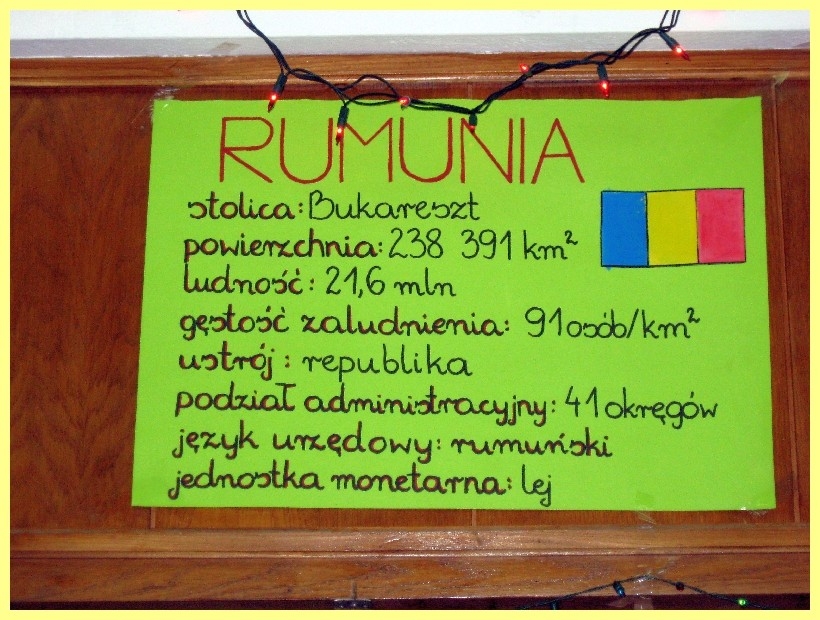 RUMUNIA
stolica: Bukareszt
powierzchnia: 238 391 km²
ludność: 21,6 mln
gęstość zaludnienia: 91 osób/km²
ustrój: republika
podział administracyjny: 41 okręgów
język urzędowy: rumuński
jednostka monetarna: lej